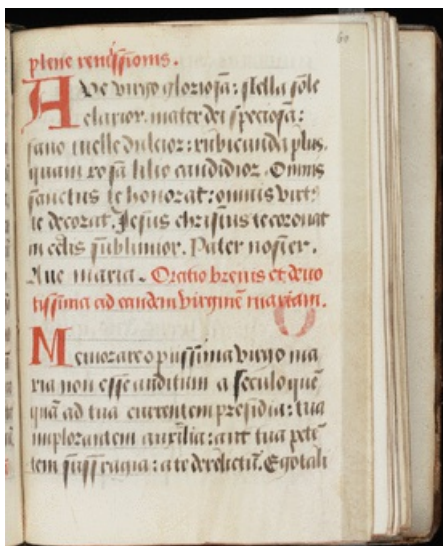 60
plene remissionis.
Ave virgo gloriosa: stella sole
clarior. mater dei speciosa:
favo melle dulcior: rubicunda plus.
quam rosa lilio candidior. Omnis
sanctus te honorat: omnis virt9
te decorat. Jesus christus te coronat
in celis sublimior. Pater noster.
Ave maria. Oratio brevis et devo
tissima ad eandem virginē mariam.
Memorare o piissima virgo ma
ria non esse auditum a seculo quē
quā ad tua currentem presidia: tua
implorantem auxilia: aut tua petē
tem suffragia: a te derelictū. Ego tali